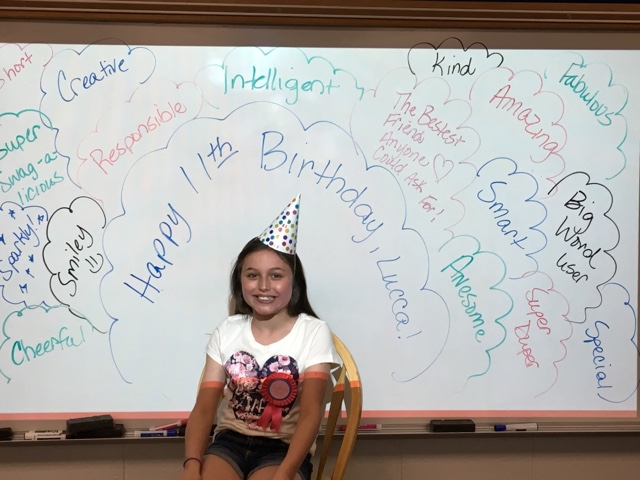 Short
Creative
Intelligent
Kind
Fabulous
Super
Swag-a-
licious
Responsible
The Bestest
Friend
Anyone
Could Ask For!
Amazing
Happy 11th Birthday, Lucca!
Sparkly!
Smiley
Smart
Big
Word
User
Cheerful
Awesome
Super
Duper
Special